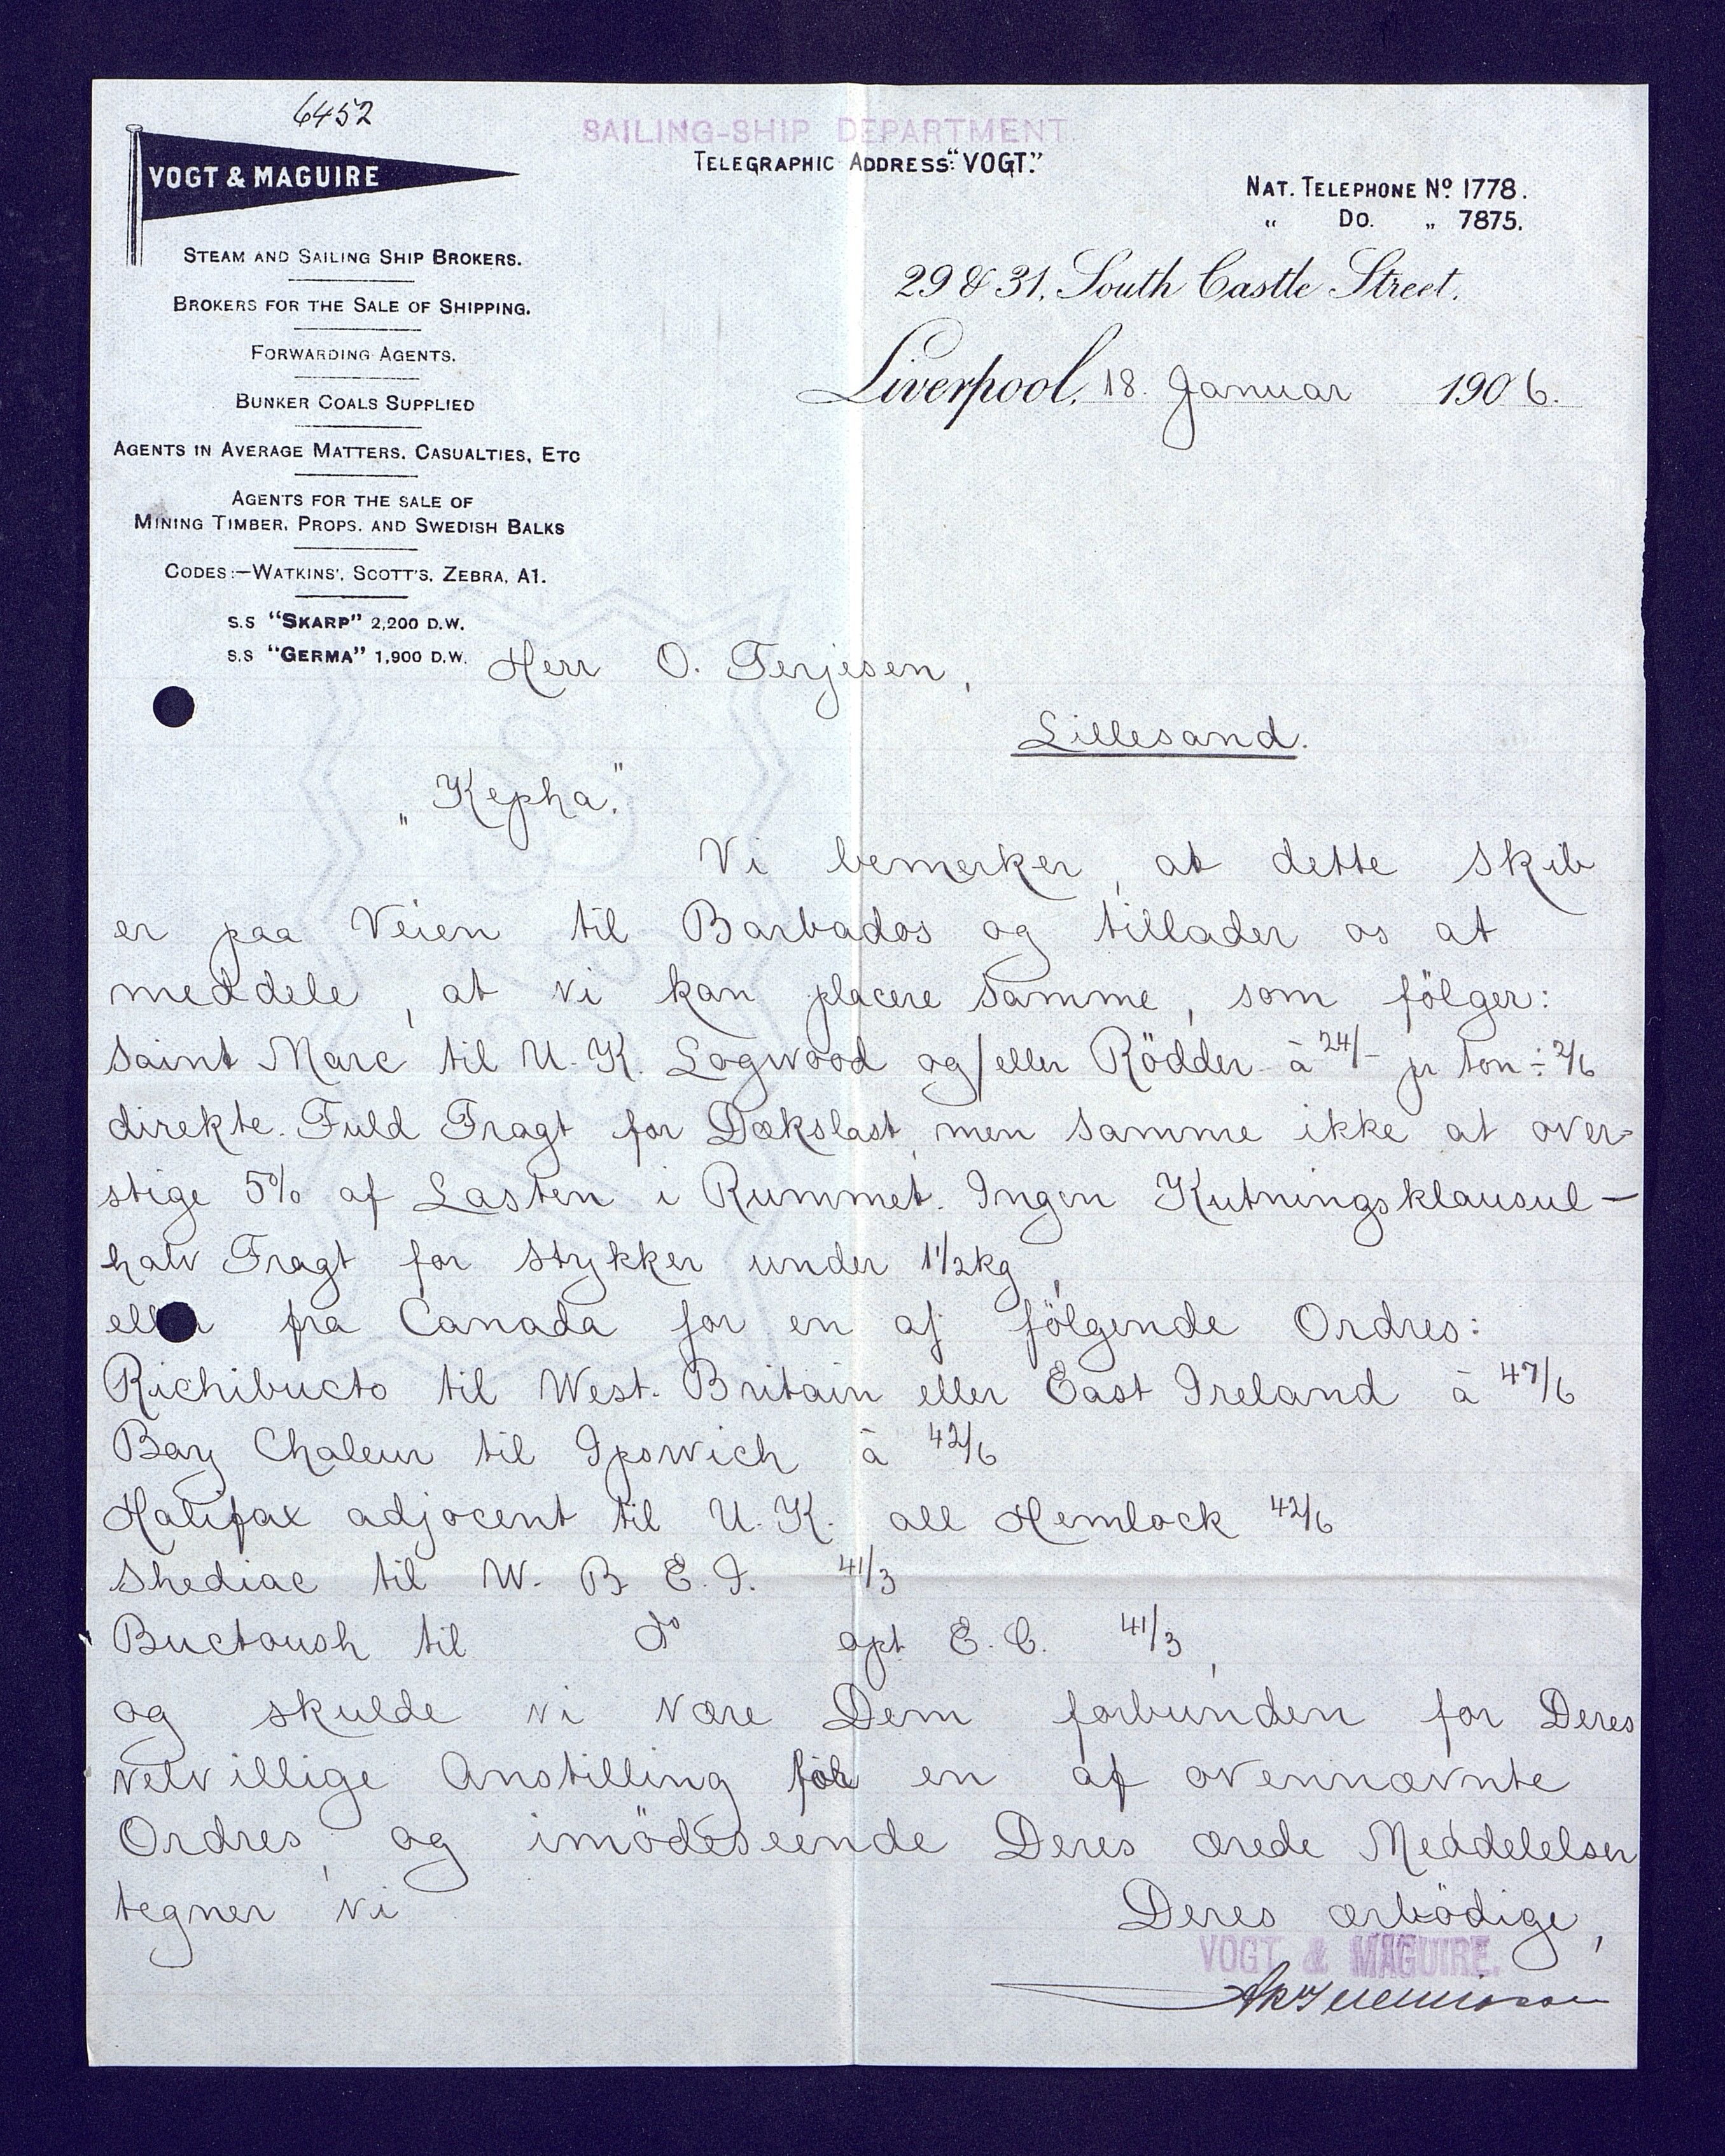 6452
SAILING-SHIP DEPARTMENT.
TELEGRAPHIC ADDRESS: "VOGT."
VOGT & MAGUIRE
NAT. TELEPHONE No 1778.
" Do. " 7875.
STEAM AND SAILING SHIP BROKERS.
BROKERS FOR THE SALE OF SHIPPING.
FORWARDING AGENTS.
BUNKER COALS SUPPLIED
AGENTS IN AVERAGE MATTERS, CASUALTIES, ETC
AGENTS FOR THE SALE OF
MINING TIMBER, PROPS, AND SWEDISH BALKS
CODES:—WATKINS', SCOTT'S, ZEBRA, A1.
S.S "SKARP" 2,200 D.W.
S.S "GERMA" 1,900 D.W.
29 & 31, South Castle Street,
Liverpool, 18. Januar 1906.
Herr O. Terjesen,
Lillesand.
„Kepha."
Vi bemerker, at dette Skib
er paa Veien til Barbados og tillader os at
meddele, at vi kan placere samme, som fölger:
Saint Marc til U.K. Logwood og/eller Rödder à 24/- pr ton ÷ 2/6
direkte. Fuld Fragt for Dækslast, men samme ikke at over-
stige 5% af Lasten i Rummet. Ingen Kutningsklausul –
halv Fragt for Stykker under 1½kg,
eller fra Canada for en af fölgende Ordres:
Richibucto til West. Britain eller East Ireland à 47/6
Bay Chaleur til Ipswich à 42/6
Halifax adjocent til U.K. all Hemlock 42/6
Shediac til W. B E.I. 41/3
Buctoush til do opt E.C. 41/3,
og skulde vi være Dem forbunden for Deres
velvillige Anstilling for en af ovennævnte
Ordres, og imödeseende Deres ærede Meddelelser
tegner vi
Deres ærbödige,
VOGT & MAGUIRE.